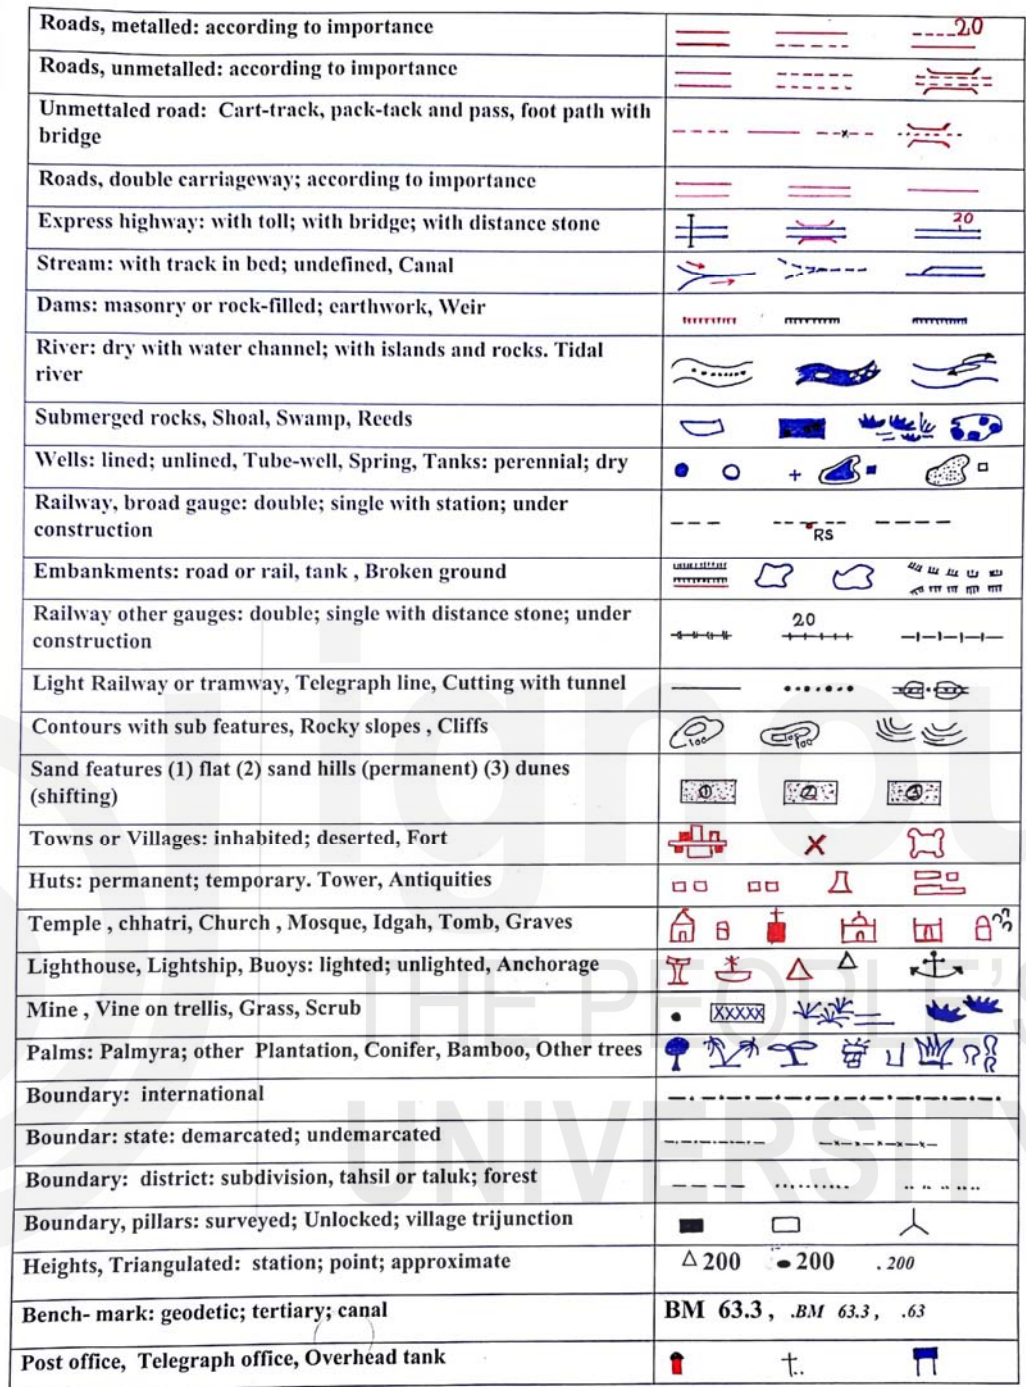 Roads, metalled: according to importance
20
Roads, unmetalled: according to importance
Unmettaled road: Cart-track, pack-tack and pass, foot path with
bridge
Roads, double carriageway; according to importance
Express highway: with toll; with bridge; with distance stone
20
Stream: with track in bed; undefined, Canal
Dams: masonry or rock-filled; earthwork, Weir
River: dry with water channel; with islands and rocks. Tidal
river
Submerged rocks, Shoal, Swamp, Reeds
Wells: lined; unlined, Tube-well, Spring, Tanks: perennial; dry
Railway, broad gauge: double; single with station; under
construction
RS
Embankments: road or rail, tank , Broken ground
Railway other gauges: double; single with distance stone; under
construction
20
Light Railway or tramway, Telegraph line, Cutting with tunnel
Contours with sub features, Rocky slopes , Cliffs
100 100
Sand features (1) flat (2) sand hills (permanent) (3) dunes
(shifting)
1 2 3
Towns or Villages: inhabited; deserted, Fort
Huts: permanent; temporary. Tower, Antiquities
Temple , chhatri, Church , Mosque, Idgah, Tomb, Graves
Lighthouse, Lightship, Buoys: lighted; unlighted, Anchorage
Mine , Vine on trellis, Grass, Scrub
Palms: Palmyra; other Plantation, Conifer, Bamboo, Other trees
Boundary: international
Boundar: state: demarcated; undemarcated
Boundary: district: subdivision, tahsil or taluk; forest
Boundary, pillars: surveyed; Unlocked; village trijunction
Heights, Triangulated: station; point; approximate
200 200 .200
Bench- mark: geodetic; tertiary; canal
BM 63.3 , .BM 63.3 , .63
Post office, Telegraph office, Overhead tank
ignou
THE PEOPLE'S
UNIVERSITY